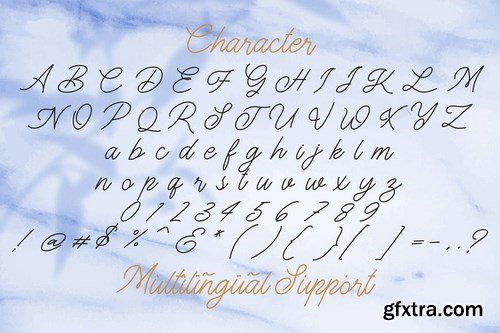 Character
A B C D E F G H I J K L M
N O P Q R S T U V W X Y Z
a b c d e f g h i j k l m
n o p q r s t u v w x y z
0 1 2 3 4 5 6 7 8 9
! @ # $ % ^ & * ( ) { } [ ] = - . . ?
Multiliñgüãl Support
gfxtra.com